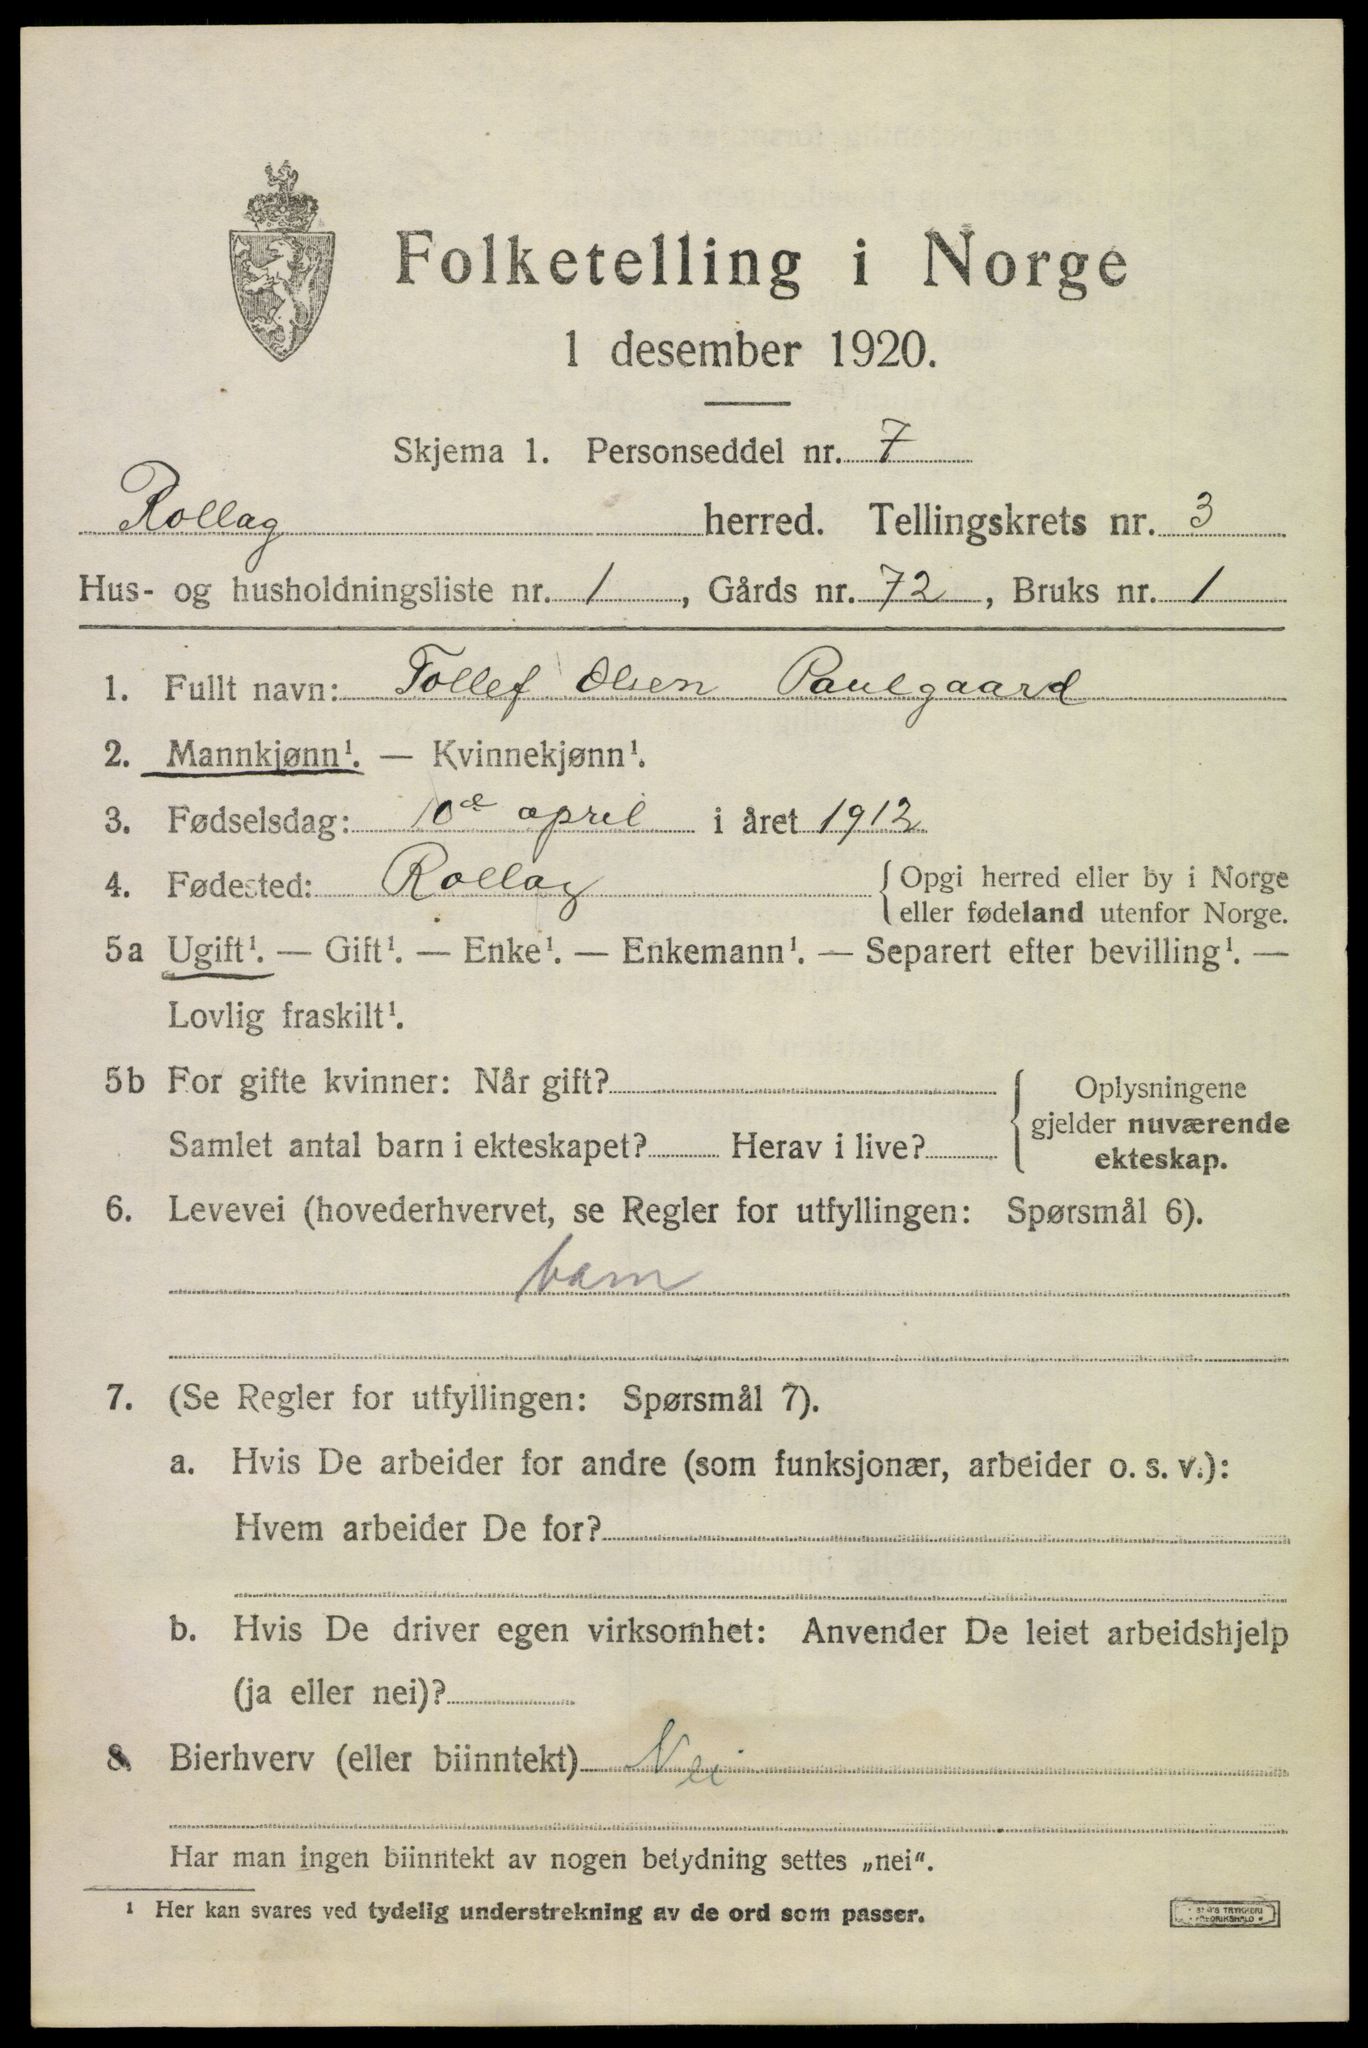 Folketelling i Norge
1 desember 1920.
Skjema 1. Personseddel nr. 7
Rollag herred. Tellingskrets nr. 3
Hus- og husholdningsliste nr. 1, Gårds nr. 72, Bruks nr. 1
1. Fullt navn: Tollef Olsen Paulgaard
2. Mannkjønn¹. — Kvinnekjønn¹.
3. Fødselsdag: 10de april i året 1912
4. Fødested: Rollag { Opgi herred eller by i Norge
eller fødeland utenfor Norge.
5a Ugift¹. — Gift¹. — Enke¹. — Enkemann¹. — Separert efter bevilling¹. —
Lovlig fraskilt¹.
5b For gifte kvinner: Når gift?
Samlet antal barn i ekteskapet? Herav i live?
Oplysningene
gjelder nuværende
ekteskap.
6. Levevei (hovederhvervet, se Regler for utfyllingen: Spørsmål 6).
barn
7. (Se Regler for utfyllingen: Spørsmål 7).
a. Hvis De arbeider for andre (som funksjonær, arbeider o. s. v.):
Hvem arbeider De for?
b. Hvis De driver egen virksomhet: Anvender De leiet arbeidshjelp
(ja eller nei)?
8. Bierhverv (eller biinntekt) Nei
Har man ingen biinntekt av nogen betydning settes „nei“.
¹ Her kan svares ved tydelig understrekning av de ord som passer.